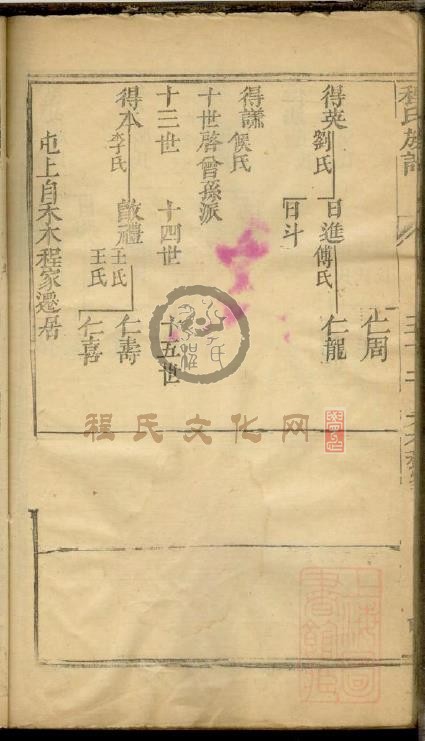 程氏族譜
仁周
得英 劉氏 日進 傅氏 仁龍
日斗
得謙 侯氏
十世啓曾孫派
十三世 十四世 十五世
得本 李氏 啟禮 王氏 王氏 仁壽
仁喜
屯上自禾木程家遷居
程氏文化网
上海圖書館藏